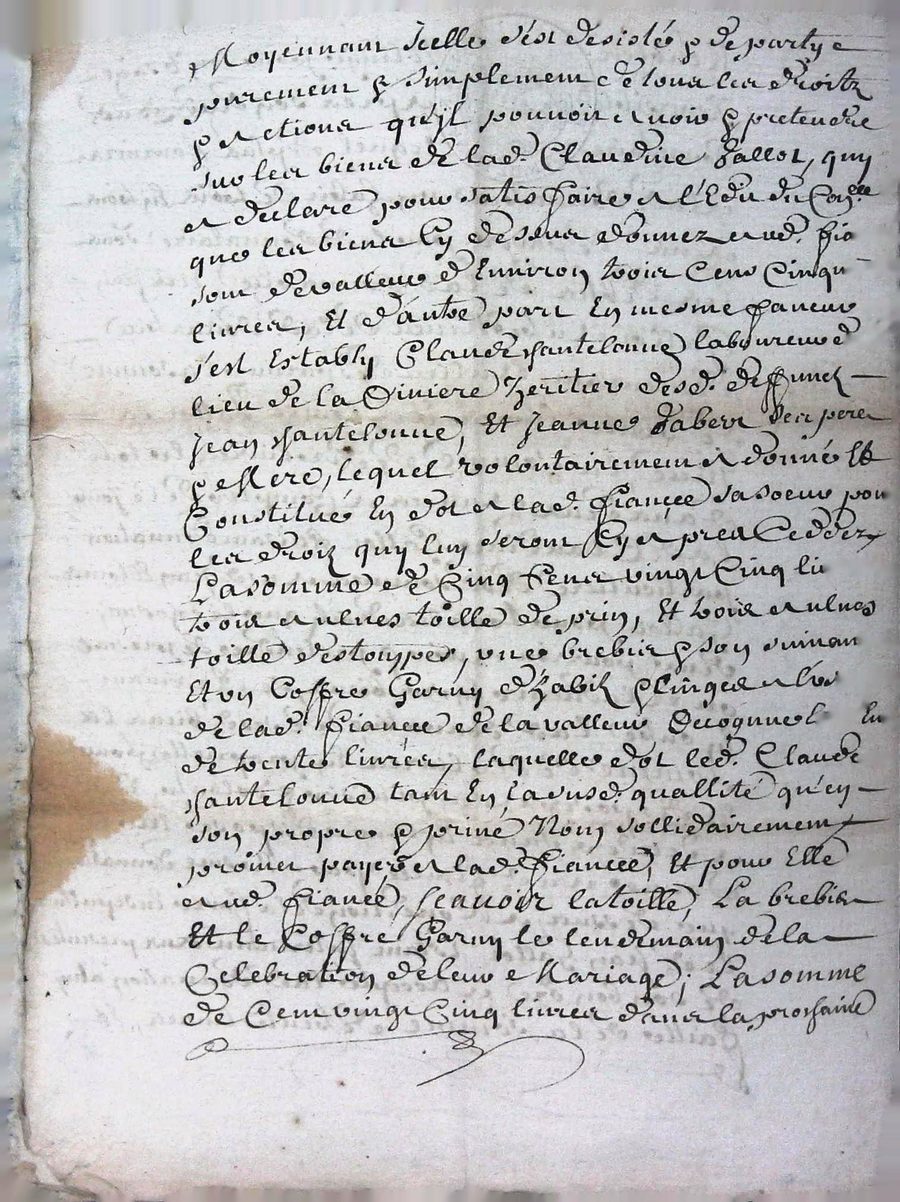 Moyennant Icelle s'est desisté & departy
purement & simplement de tous les droitz
& actions qu'il pouvoit avoir & pretendre
sur les biens de lad. Claudine Fallot, quy
a declaré pour satisfaire a l'Edit du Con.lle
que les biens Cy dessus donnez aud. fia
sont de valleur d'Environ trois Cens Cinqu
livres, Et d'autre part En mesme faveur
s'est Estably Claude Chantelonne laboureur d
lieu de la Diniere heritier desd. deffunctz
Jean Chantelonne, Et Jeanne Faberr ses pere
& Mere, lequel volontairement a donné Et
Constitué En dot a lad. fiancée sa soeur pour
les droiz quy luy seront Cy apres Ceddez
La somme de Cinq Cens vingt Cinq liv
trois aulnes toille de prin, Et trois aulnes
toille d'estouppes, une brebis & son suivan
Et un Coffre Garny d'habitz & linges a l'us
de lad. fiancée de la valleur Recognue En
de trente livres, laquelle dot led. Claude
Chantelonne tant En la susd. quallité qu'en
son propre & privé Nom sollidairement
promet payer a lad. fiancée, Et pour Elle
aud. fiancé, scavoir la toille, La brebis
Et le Coffre Garny le lendemain de la
Celebration de leur Mariage; La somme
de Cent vingt Cinq livres dans la prochaine